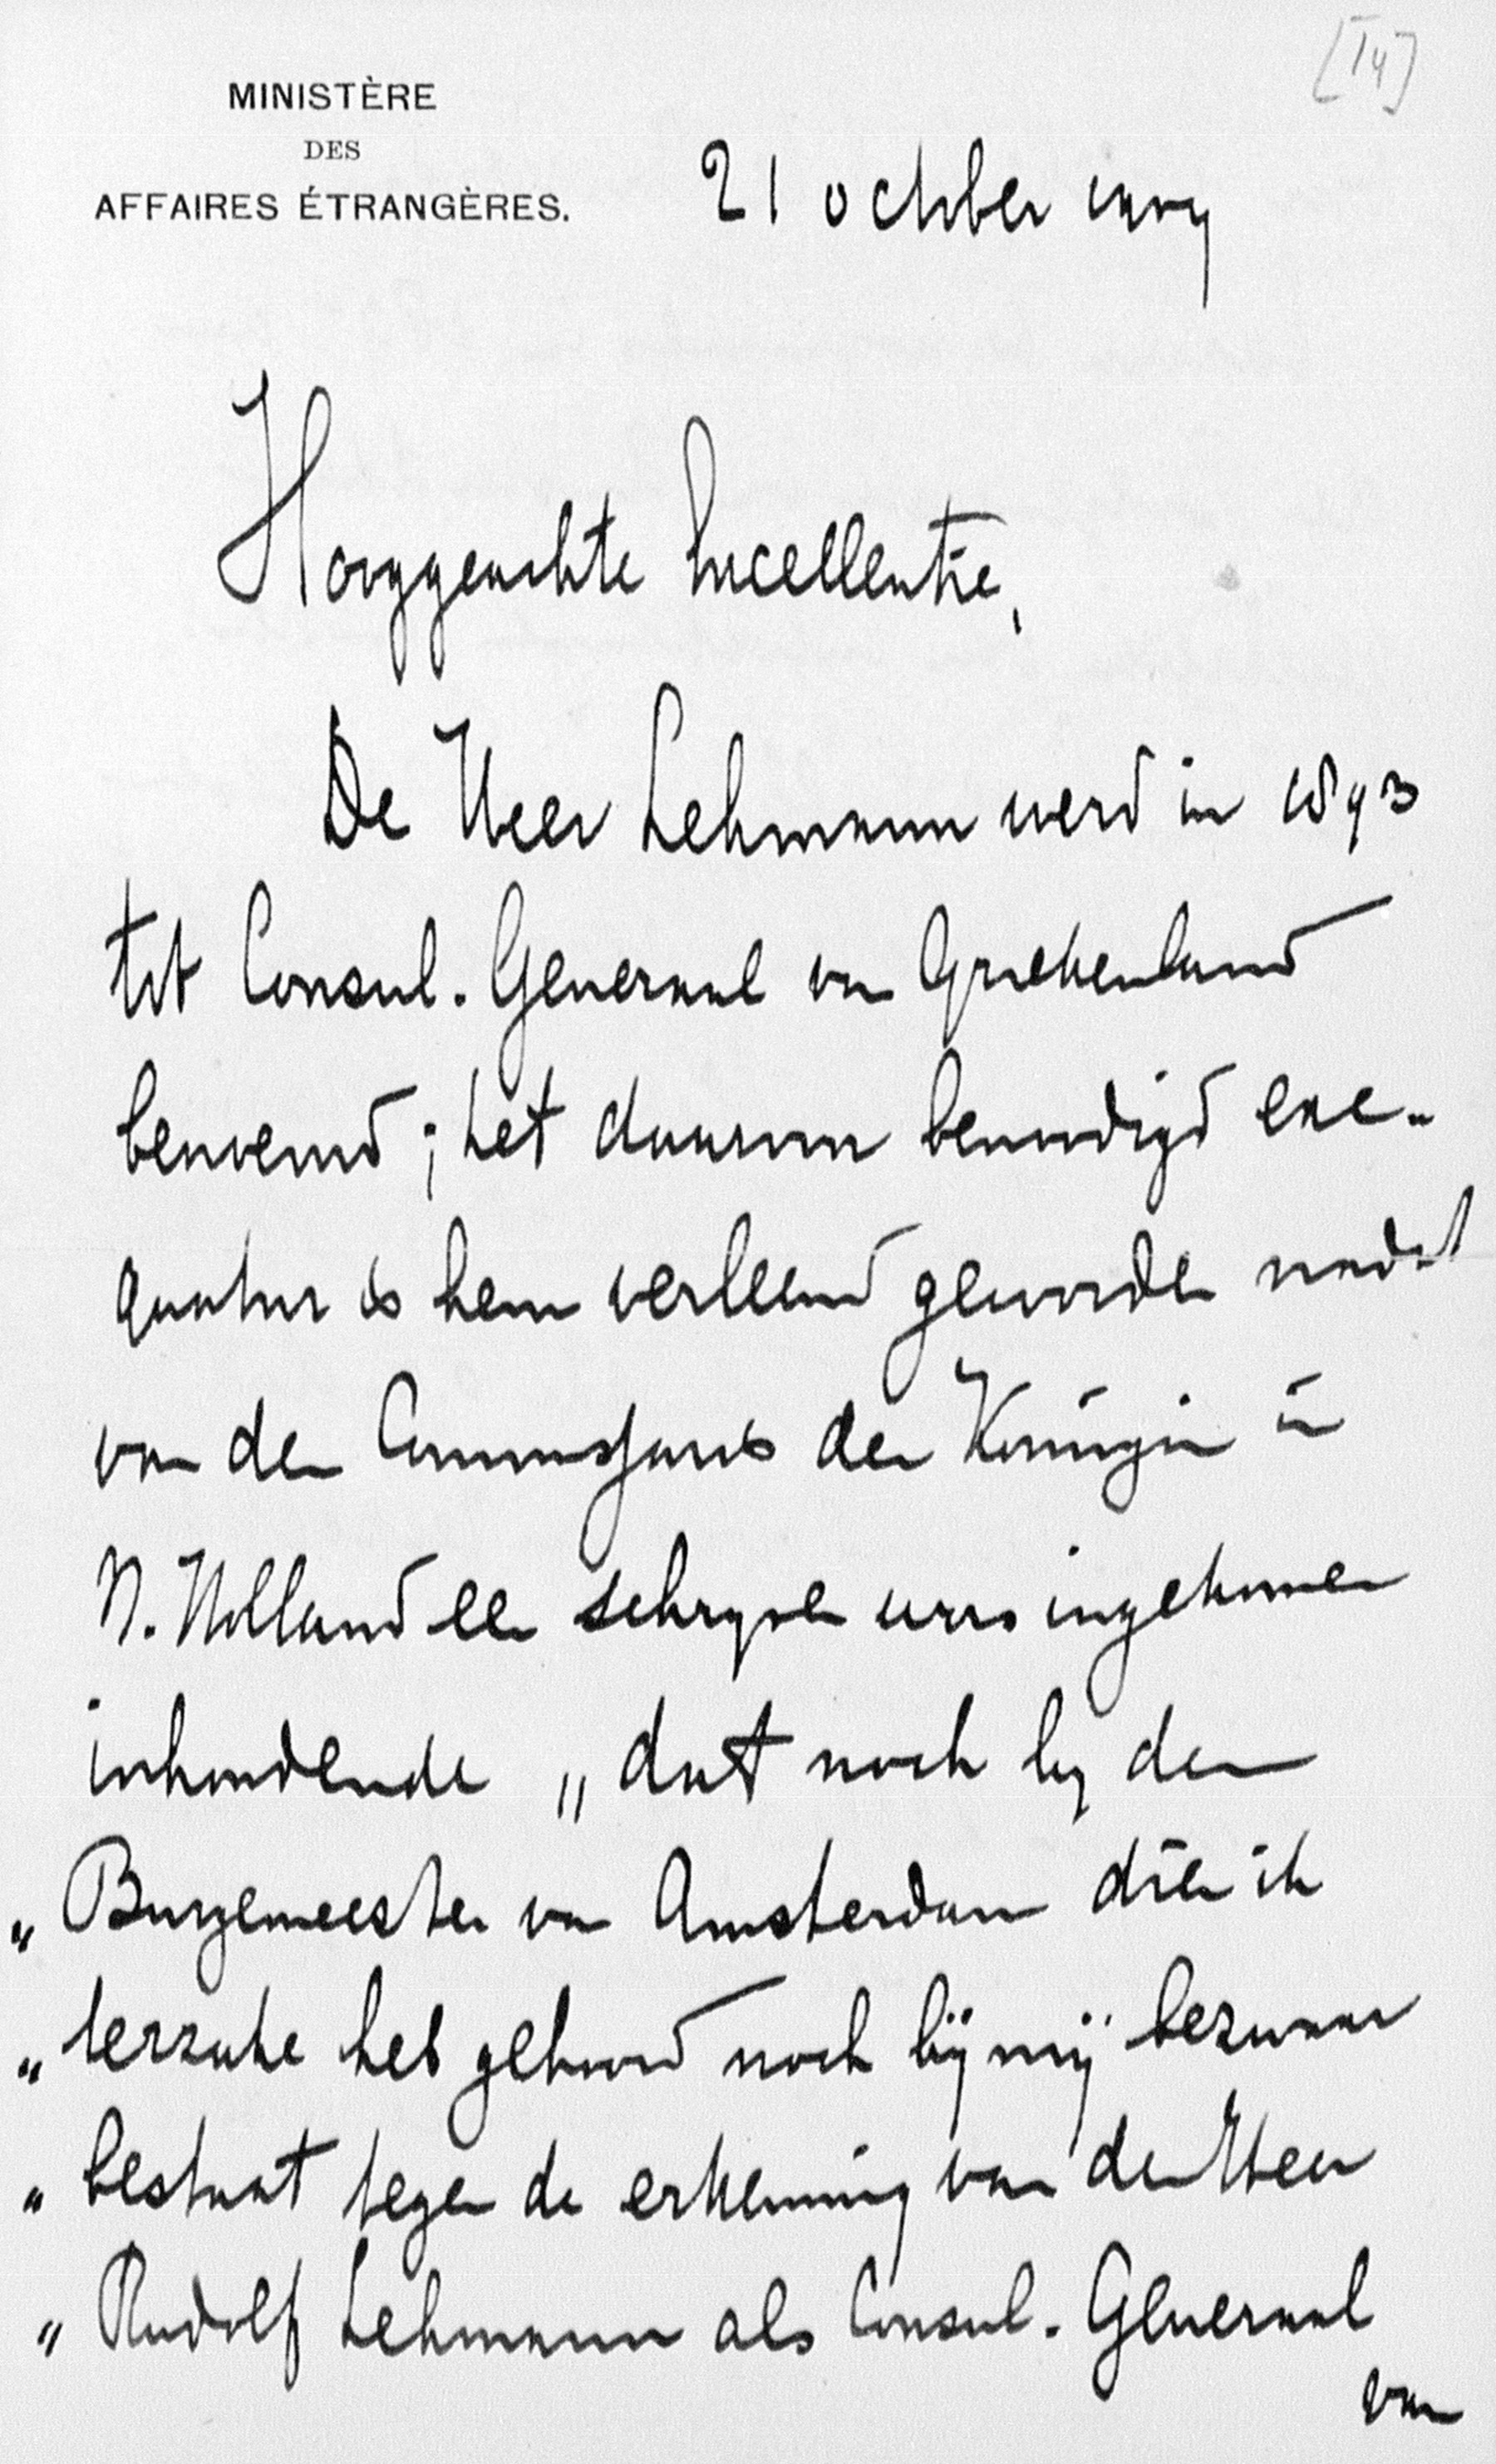 [14]
MINISTÈRE
DES
AFFAIRES ÉTRANGÈRES.
21 october
Hooggeachte Excellentie,
De Heer Lehmann werd in 1893
tot Consul-Generaal van Griekenland
benoemd; het daarvoor benoodigd exe-
quatur is hem verleend geworden nadat
van den Commissaris der Koningin in
N. Holland een schrijven was ingekomen
inhoudende „dat noch bij den
„Burgemeester van Amsterdam dien ik
„terzake heb gehoord noch bij mij bezwaar
„bestaat tegen de erkenning van den Heer
„Rudolf Lehmann als Consul-Generaal
van